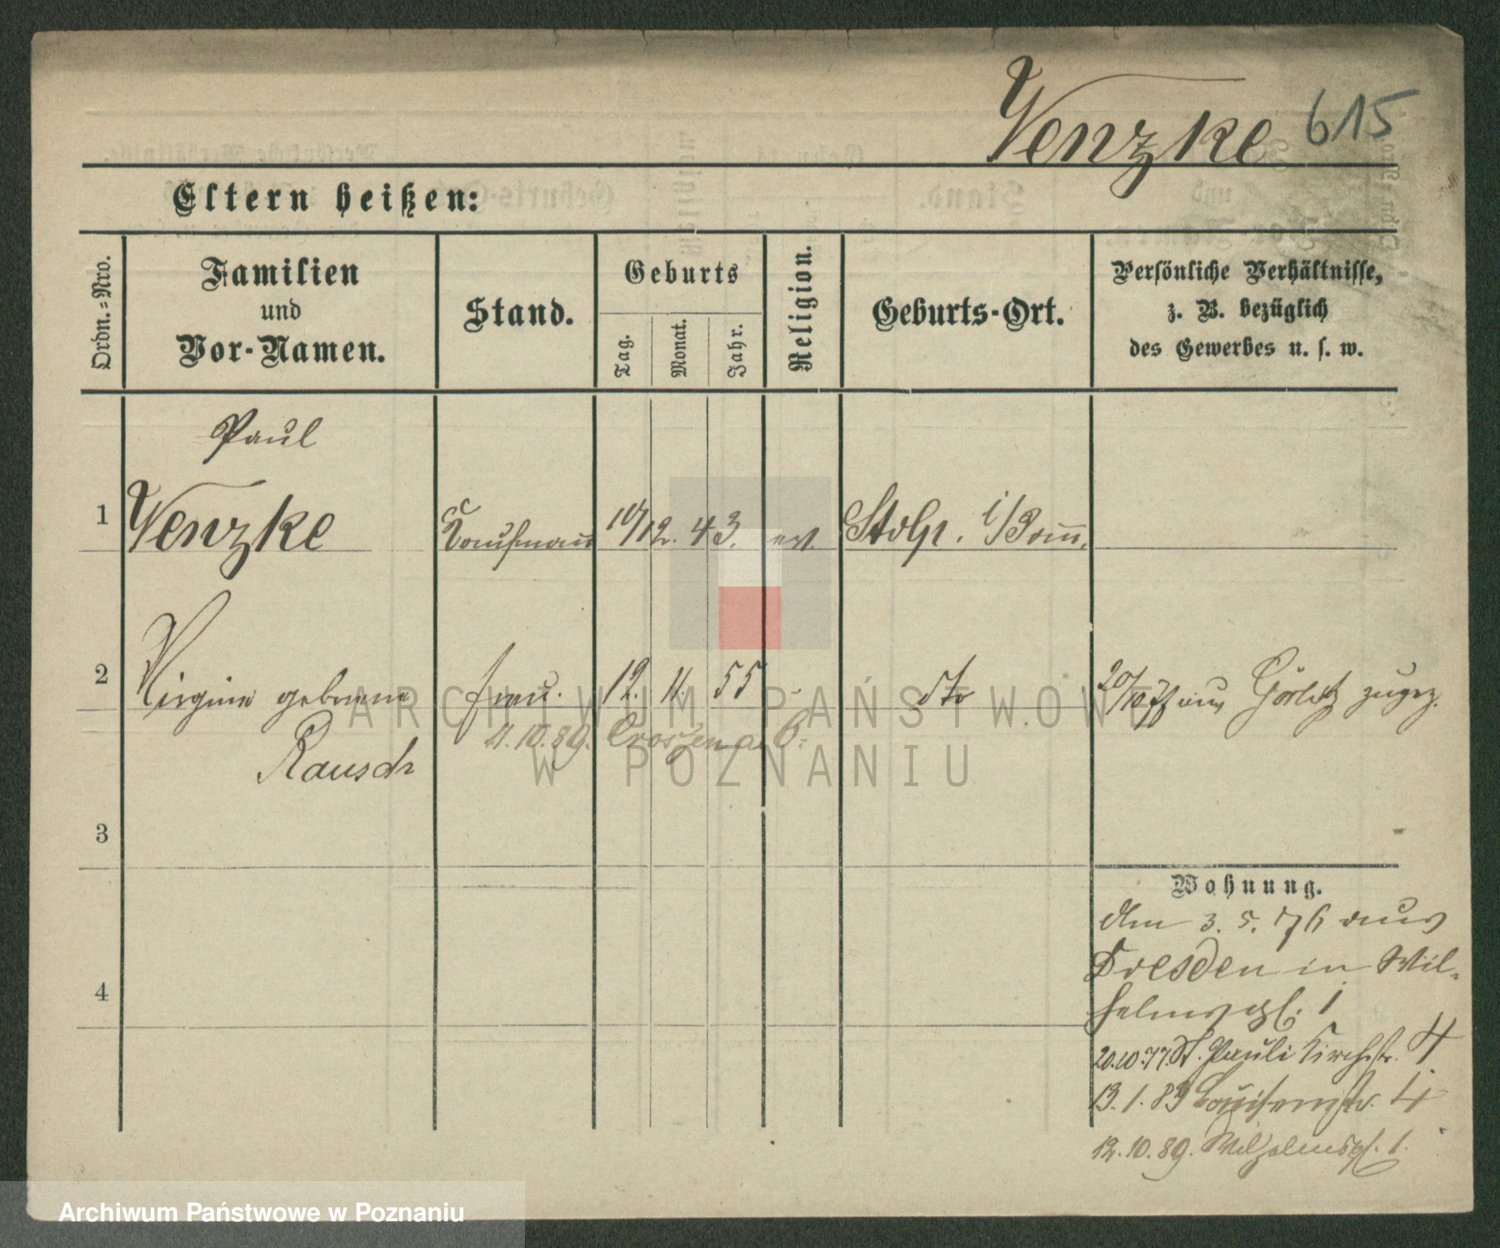 Wenzke 615
Eltern heißen:
Ordn.=Nro.
Familien
und
Vor-Namen.
Stand.
Geburts
Tag.
Monat.
Jahr.
Religion.
Geburts-Ort.
Persönliche Verhältnisse,
z. B. bezüglich
des Gewerbes u. s. w.
Paul
1 Wenzke Kaufmann 10/12. 43. ev. Stolp. i/Pom.
2 geborene Frau. 12. 11. 55 dto 20/10 77 aus Görlitz zugez.
Rausch
11.10.89. Crossen a. O.
3
4
Wohnung.
den 3. 5. 76 aus
Dresden in Wil-
helmspl. 1
20.10.77. St. Pauli Kirchstr. 4
13. 1. 83 Louisenstr. 4
12. 10. 89. Wilhelmspl. 1.
ARCHIWUM PAŃSTWOWE
W POZNANIU
Archiwum Państwowe w Poznaniu